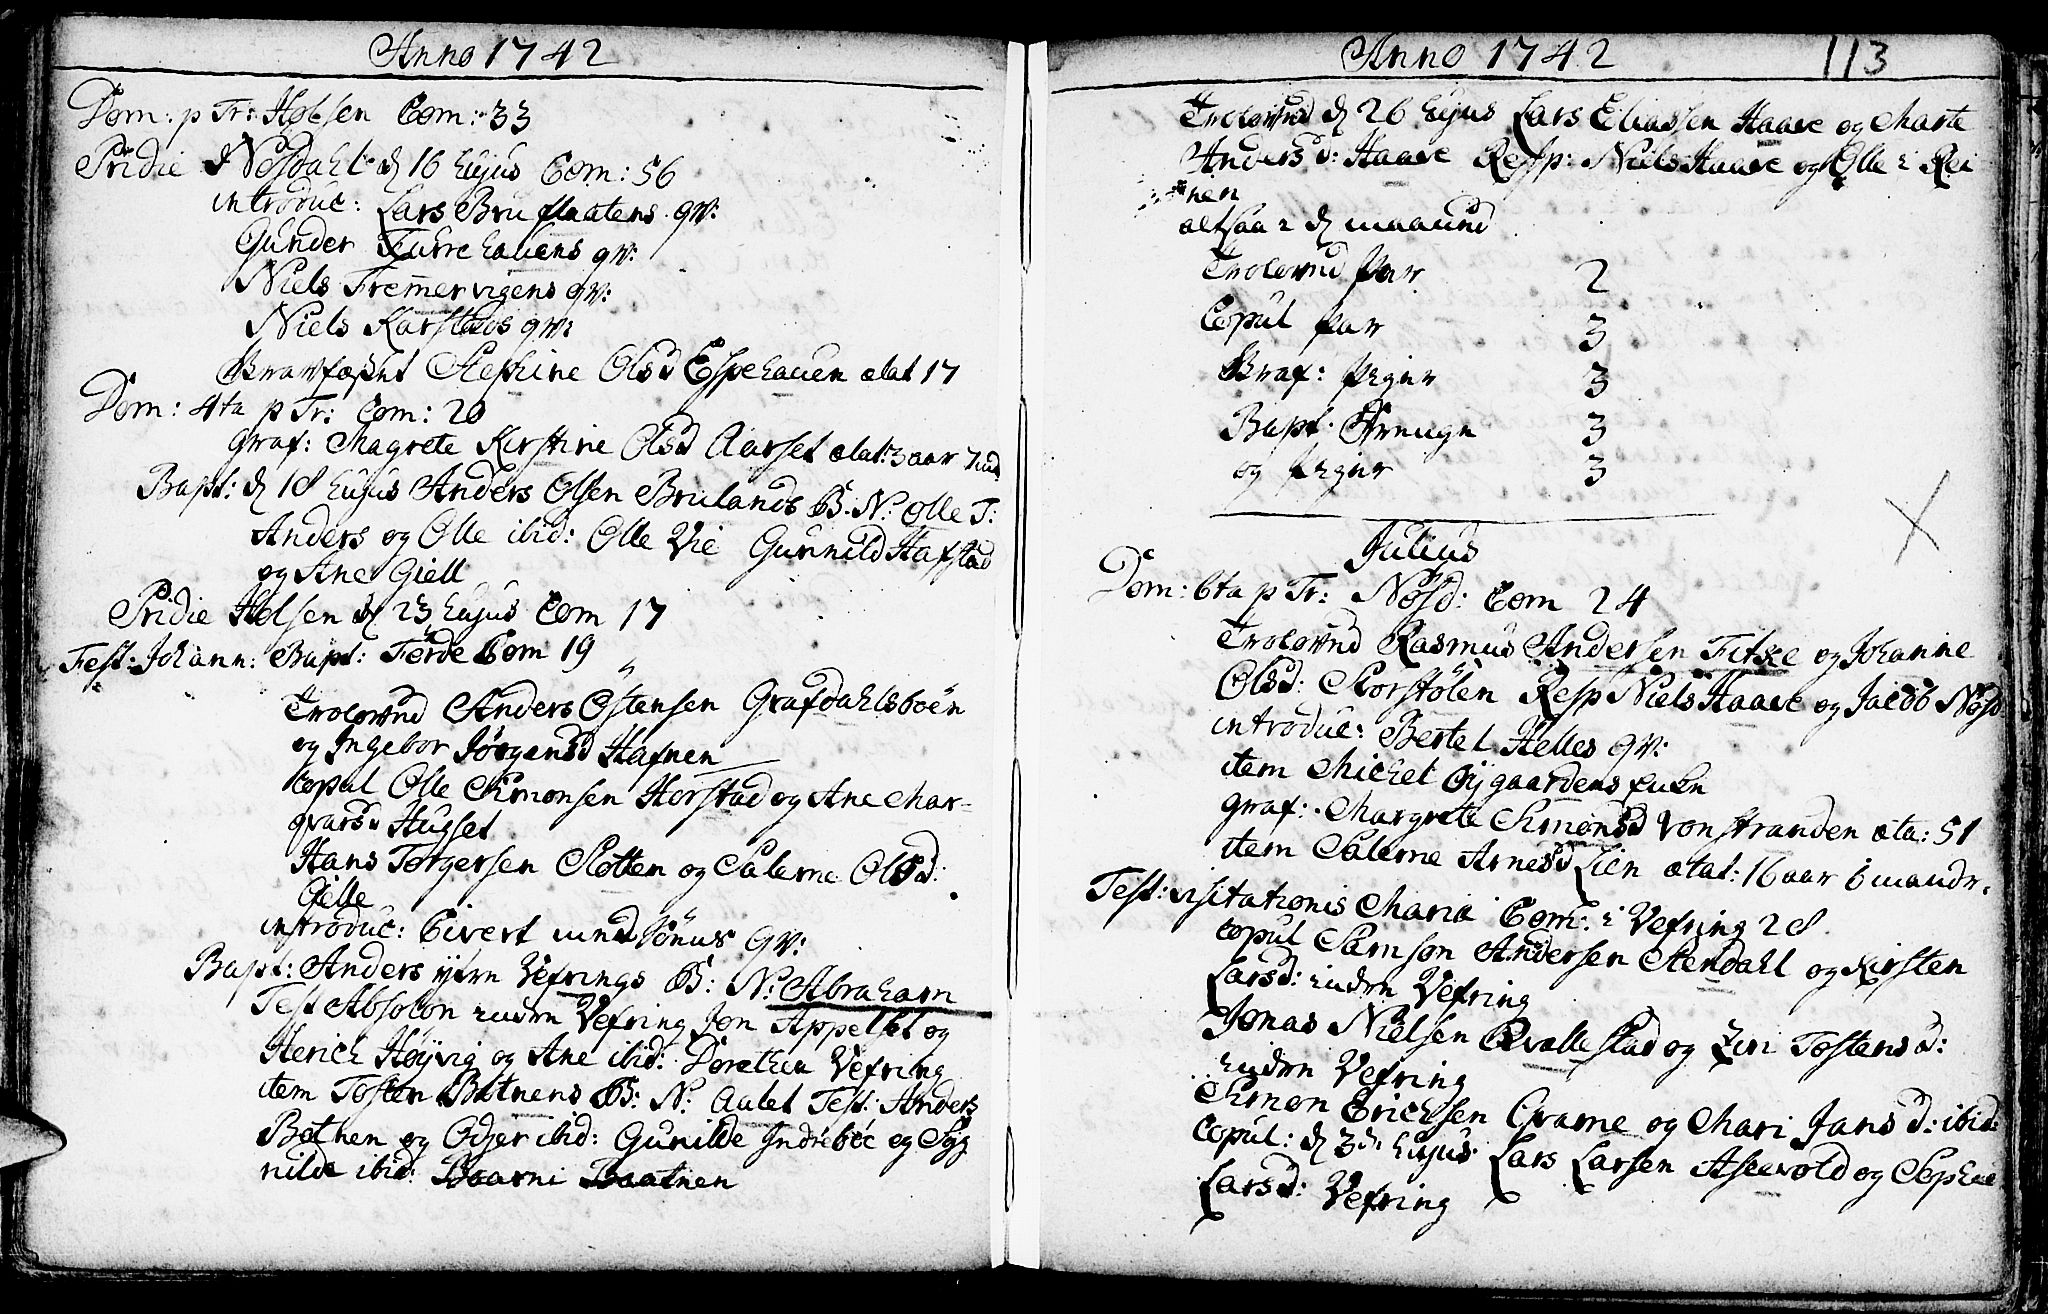 Anno 1742
Dom: p Tr: Holsen Com: 33
Pridie i Nøsdahl d 16 hujus Com: 56
introduc: Lars Bruflaatens qv:
Gunder Turrehauens qv:
Niels Fremervigens qv:
Niels Karstads qv:
Stephine Olsd Espehauen ætat 17
Dom: 4ta p Tr: Com: 20
Graf: Magrete Kirstine Olsd Aarset ætat: 3 aar
Bapt: d 18 hujus Anders Olsen Brulands B. N: Olle T:
Anders og Olle ibid: Olle Vie Gunnild Hafstad
og Ane Giell
Pridie Holsen d 23 hujus Com 17
Fest: Johann: Bapt: Førde Com 19
Trolovud Anders Østensen Grafdahlsboen
og Ingebor Jørgensd Hafnen
Copul Olle Simonsen Horstad og Ane Mar-
qvarsd Hugset
Hans Torgersen Slotten og Salerne Olsd:
Gielle
introduc: Sivert qv:
Bapt: Anders Vefrings B: N: Abraham
Test Absolon Vefring Jon Appelset og
Herich Høyvig og Ane ibid: Dorethea Vefring
item Tosten Botnens B: N: Aalet Test: Anders
Botnen og Odger ibid: Gunilde Indreboe og Syg
nilde ibid: Baarni Baatnen
Anno 1742 113
Trolovud d 26 hujus Lars Eliassen Haave og Marte
Andersd: Haave Resp: Niels Haave og Olle i Rei
nen
altsaa i d maanud
Trolovud Par 2
Copul Par 3
Graf: Piger 3
Bapt: Drenge 3
og Piger 3
Julius
Dom: 6ta p Tr: Nøsd: Com 24
Trolovud Rasmus Andersen Fitske og Johanne
Olsd: Storstølen Resp Niels Haave og Jacob Nøsd
introduc: Bertel Helles qv:
item Michel Øygaardens
Graf: Margrete Simonsd Vonstranden æta: 51
item Salerne Arnesd Lien ætat: 16 aar 6 maandr.
Fest: visitationis Mariæ Com: i Vefring 28.
Copul Samson Andersen Stendahl og Kirsten
Larsd: Vefring
Jonas Nielsen Qvallestad og Tostensd:
Vefring
Simon Erichsen Grame og Mari Jansd: ibid:
Copul: d 3de hujus Lars Larsen Asevold og Sophie
Larsd: Vefring